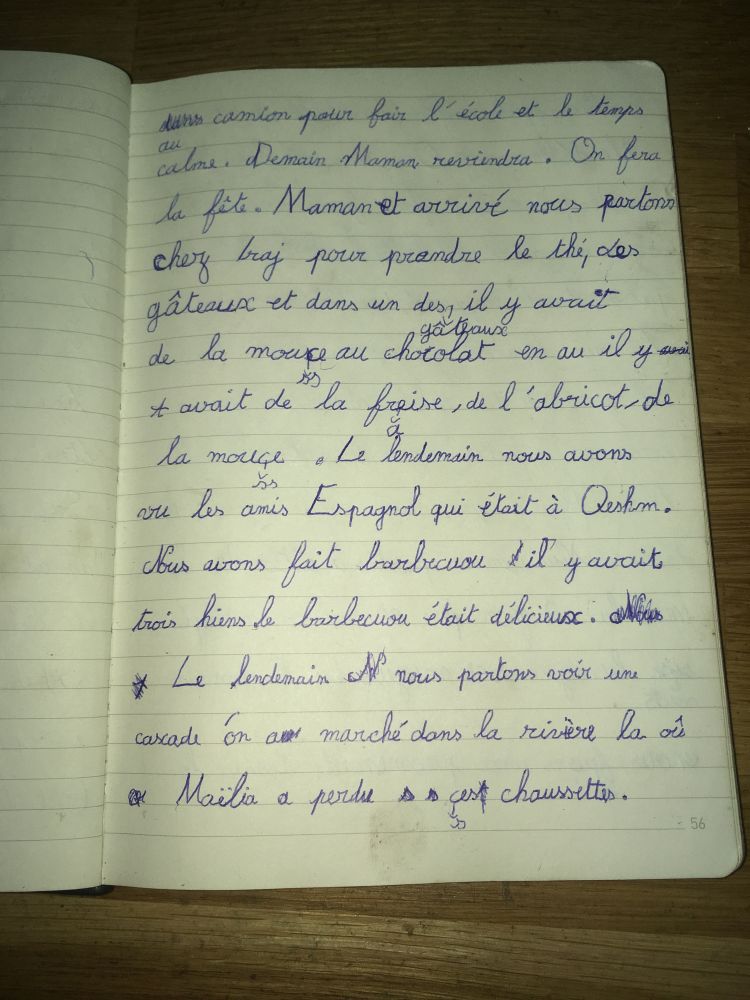 dans camion pour fair l'école et le temps
au
calme. Demain Maman reviendra. On fera
la fête. Maman et arrivé nous partons
chez Iraj pour prandre le thé, des
gâteaux et dans un des, il y avait
gâteaux
de la mouçe au chocolat en au il y
avait de la freise, de l'abricot, de
ss
a
la mouçe. Le lendemain nous avons
ss
vu les amis Espagnol qui était à Qeshm.
Nous avons fait barbecuou il y avait
trois hiens le barbecuou était délicieux.
Le lendemain nous partons voir une
cascade on a marché dans la rivière la où
Maëlia a perdu çes chaussettes.
s
56